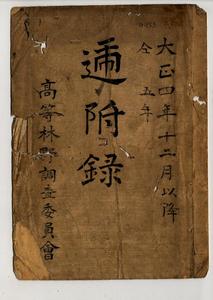 大正四年十二月以降
仝 五年
逓附録
高等林野調査委員會